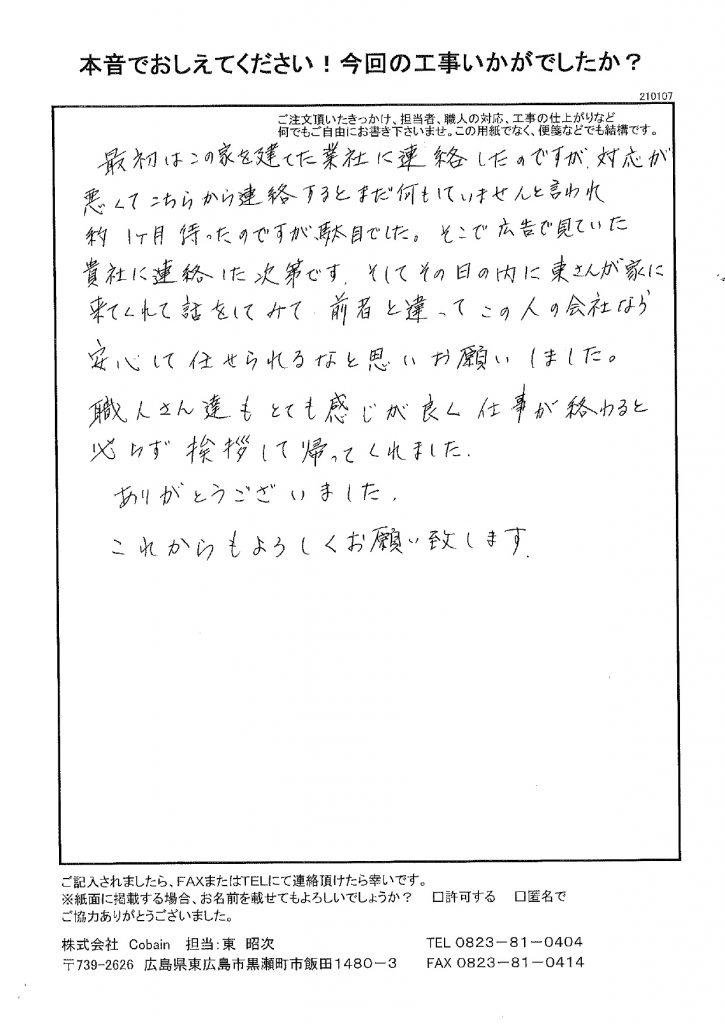 本音でおしえてください！今回の工事いかがでしたか？
210107
ご注文頂いたきっかけ、担当者、職人の対応、工事の仕上がりなど
何でもご自由にお書き下さいませ。この用紙でなく、便箋などでも結構です。
最初はこの家を建てた業社に連絡したのですが、対応が
悪くてこちらから連絡するとまだ何もしていませんと言われ
約1ヶ月待ったのですが駄目でした。そこで広告で見ていた
貴社に連絡した次第です。そしてその日の内に東さんが家に
来てくれて話をしてみて前者と違ってこの人の会社なら
安心して任せられるなと思いお願いしました。
職人さん達もとても感じが良く仕事が終わると
必らず挨拶して帰ってくれました。
ありがとうございました。
これからもよろしくお願い致します。
ご記入されましたら、FAXまたはTELにて連絡頂けたら幸いです。
※紙面に掲載する場合、お名前を載せてもよろしいでしょうか？ □許可する □匿名で
ご協力ありがとうございました。
株式会社 Cobain 担当：東 昭次 TEL 0823－81－0404
〒739-2626 広島県東広島市黒瀬町市飯田1480－3 FAX 0823－81－0414